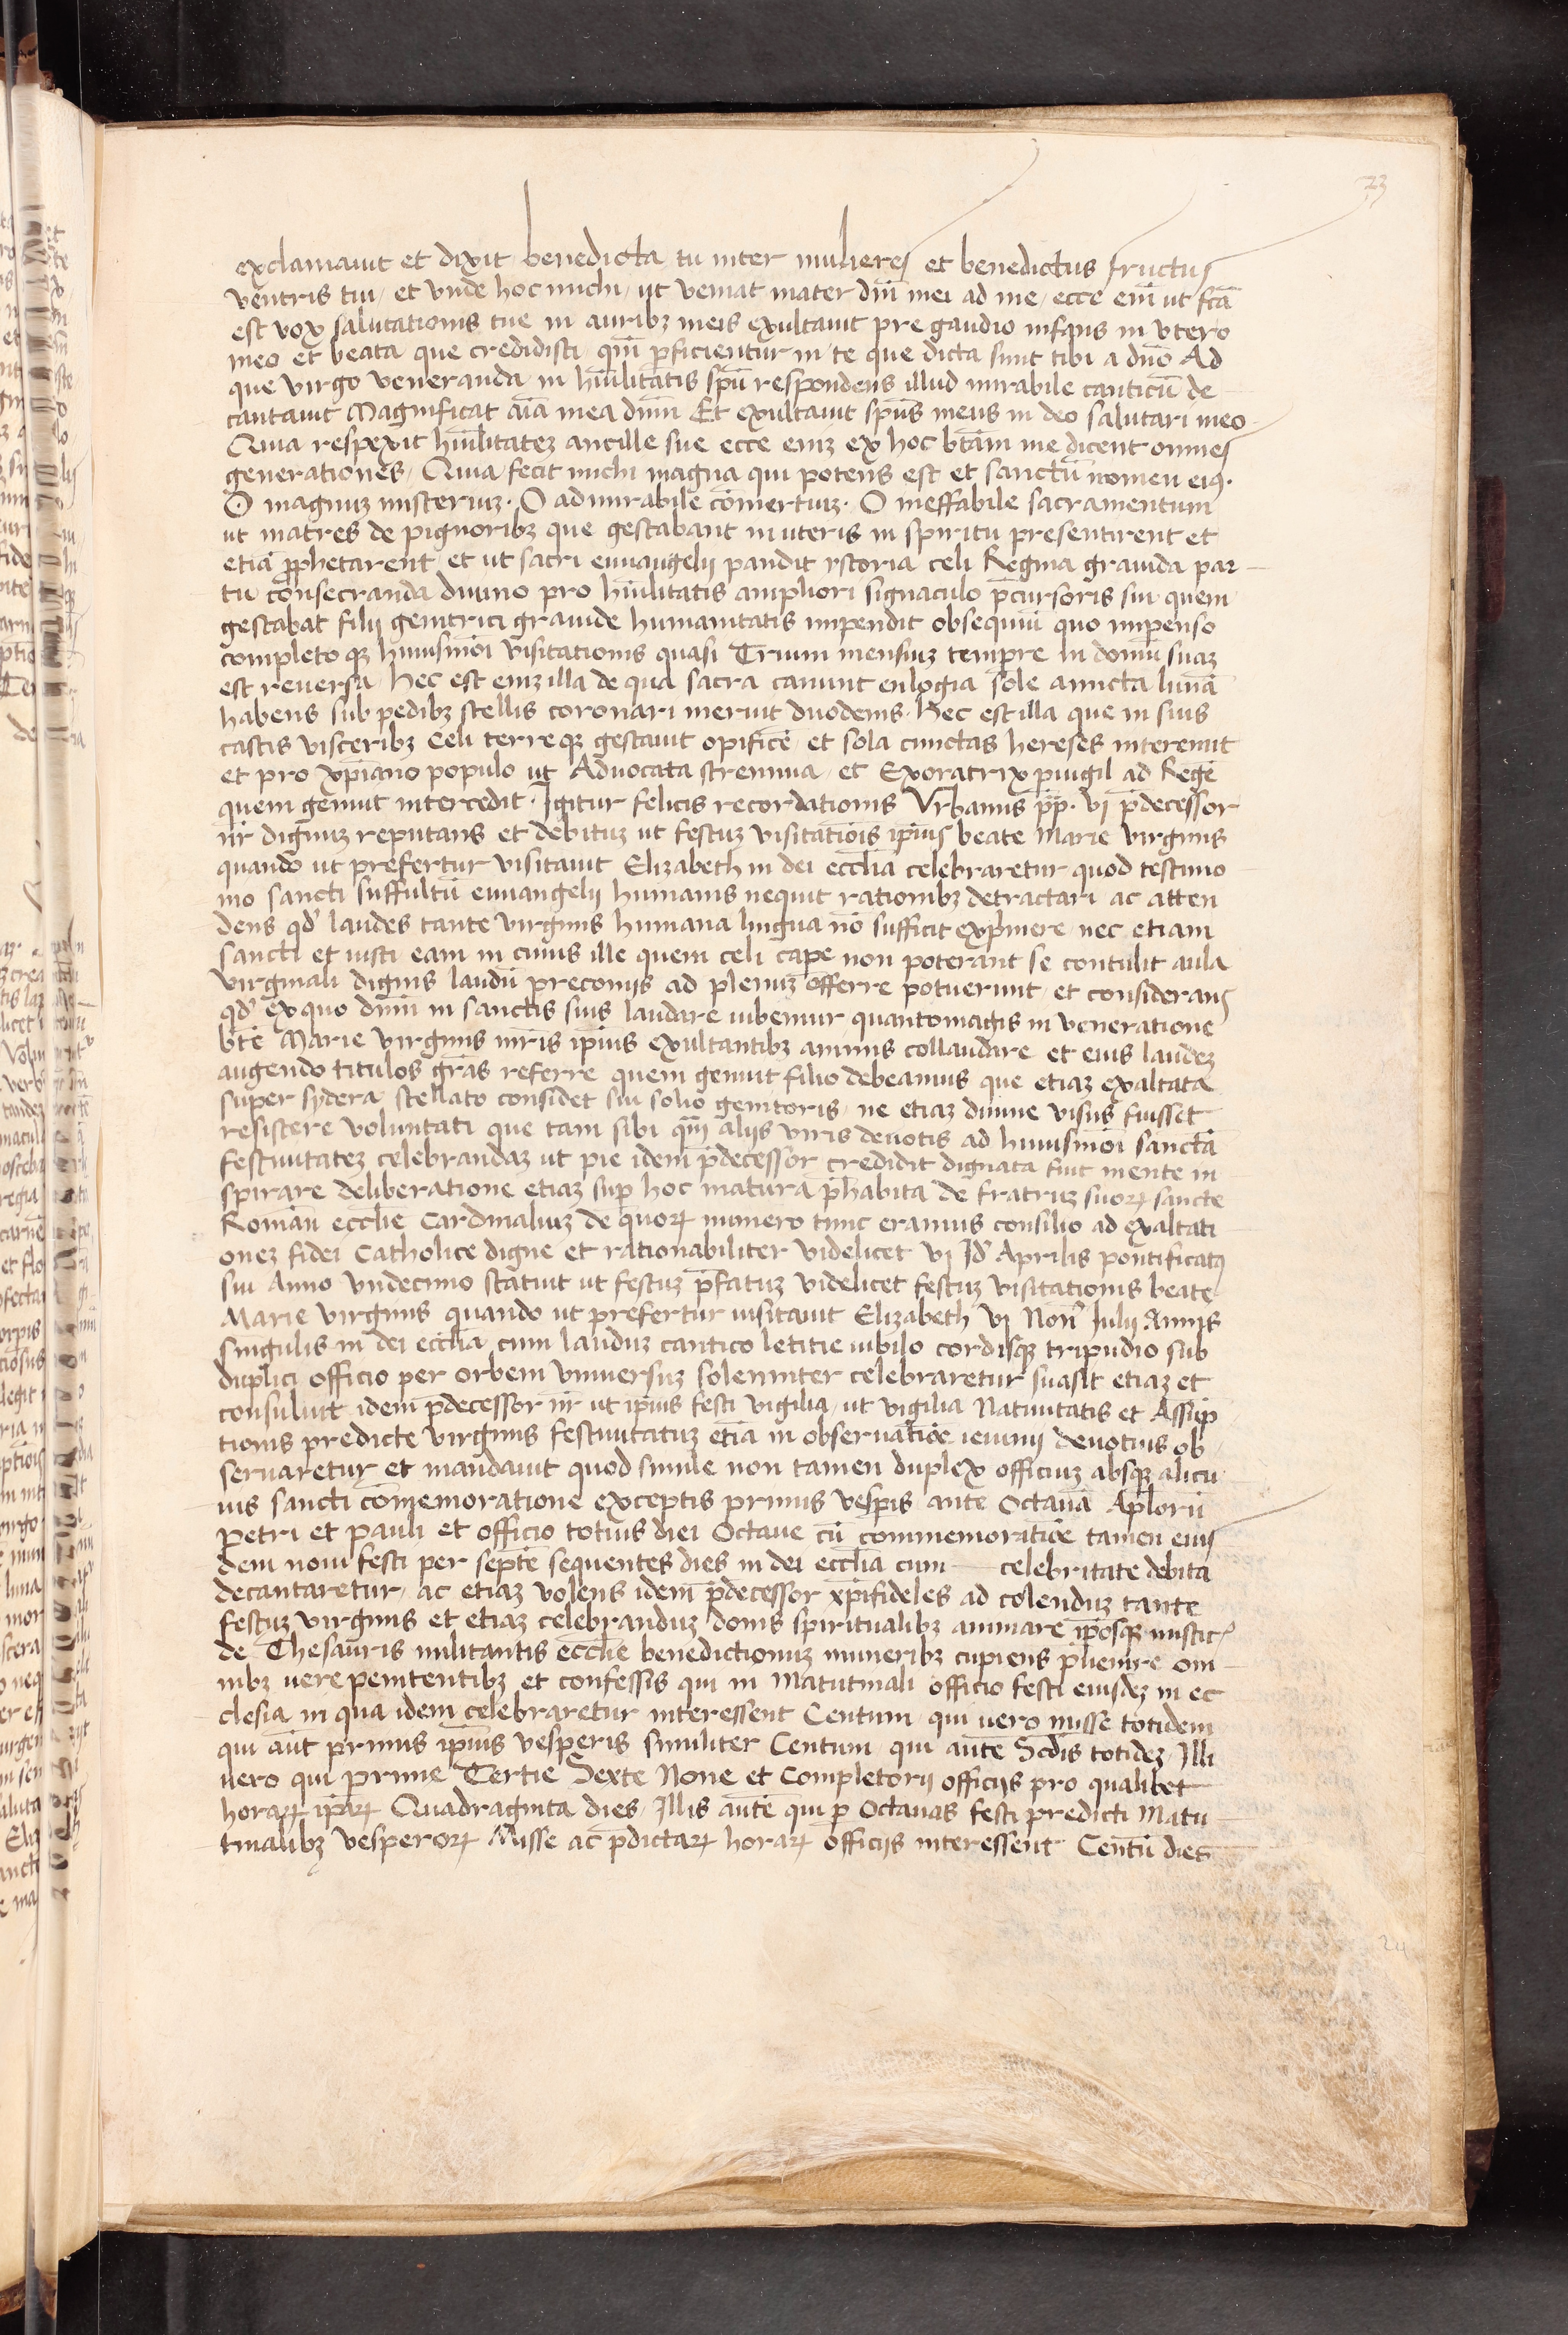 23
exclamauit et dixit benedicta tu inter mulieres et benedictus fructus
ventris tui / et vnde hoc michi / ut veniat mater dn̄i mei ad me / ecce eni᷒ ut fc̄a
est vox salutationis tue in auribꝫ meis exultauit pre gaudio infans in vtero
meo et beata que credidisti / qm̄ ꝑficientur in te que dicta sunt tibi a dn̄o Ad
que virgo veneranda in hūilitatis sp̄u respondens illud mirabile canticū de
cantauit Magnificat aīa mea dn̄m Et exultauit sp̄us meus in deo salutari meo
Quia respexit hūilitateꝫ ancille sue ecce enīꝫ ex hoc btām me dicent omnes
generationes / Quia fecit michi magna qui potens est et sanctū nomen eiꝰ.
O magnuꝫ misteriuꝫ. O admirabile cōmertiuꝫ. O ineffabile sacramentum
ut matres de pignoribꝫ que gestabant in uteris in spiritu presentirent et
etiā ꝓphetarent / et ut sacri euuangelij pandit ystoria celi Regina grauida par
tu consecranda diuino pro hūilitatis ampliori signaculo p̄cursoris sui quem
gestabat filij genitrici grauide humanitatis impendit obsequiū quo impenso
completo qꝫ huiusmōi visitationis quasi Trium mensiuꝫ tempre in domū suaꝫ
est reuersa / hec est enīꝫ illa de qua sacra canunt eulogia sole amicta lunā
habens sub pedibꝫ stellis coronari meruit duodenis. Hec est illa que in suis
castis visceribꝫ Celi terre qꝫ gestauit opificē / et sola cunctas hereses interemit
et pro xp̄iano populo ut Aduocata strenua / et Exoratrix ꝑuigil ad Regē
quem genuit intercedit. Igitur felicis recordationis Vrbanus pp̄. vi p̄decessor
nr̄ dignuꝫ reputans et debituꝫ ut festuꝫ visitatiōis ip̄ius beate Marie virginis
quando ut prefertur visitauit Elizabeth in dei ecclīa celebraretur quod testimo
nio sancti suffultū euuangelij humanis nequit rationibꝫ detractari ac atten
dens qd̄ laudes tante virginis humana lingua nō sufficit exp̄mere / nec etiam
sancti et iusti eam in cuius ille quem celi cape non poterant se contulit aula
virginali dignis laudū preconijs ad plenuꝫ offerre potuerunt / et considerans
qd̄ ex quo dn̄m in sanctis suis laudare iubemur quantomagis in veneratione
btē Marie virginis mr̄is ip̄ius exultantibꝫ animis collaudare et eius laudeꝫ
augendo titulos grās referre quem genuit filio debeamus que etiaꝫ exaltata
super sydera stellato considet sui solio genitoris / ne etiaꝫ diuine visus fuisset
resistere voluntati que tam sibi qm̄ alijs viris deuotis ad huiusmōi sanctā
festiuitateꝫ celebrandaꝫ ut pie idem p̄decessor credidit dignata fuit mente in
spirare deliberatione etiaꝫ suꝑ hoc matura p̄habita de fratruꝫ suoꝝ sancte
Romāū ecclīe Cardinaliuꝫ de quoꝝ numero tunc eramus consilio ad exaltati
oneꝫ fidei Catholice digne et rationabiliter videlicet vi Id̄ Aprilis pontificatꝰ
sui Anno vndecimo statuit ut festuꝫ p̄fatuꝫ videlicet festuꝫ visitationis beate
Marie virginis quando ut prefertur uisitauit Elizabeth vi Non̄ Iulij Annis
singulis in dei ecclīa cum lauduꝫ cantico letitie iubilo cordisqꝫ tripudio sub
duplici officio per orbem vniuersuꝫ solenniter celebraretur suasit etiaꝫ et
consuluit idem p̄decessor nr̄ ut ip̄ius festi vigilia / ut vigilia Natiuitatis et Assūp
tionis predicte virginis festiuitatuꝫ etiā in obseruatiōe ieiunij deuotius ob
seruaretur et mandauit quod simile non tamen duplex officiuꝫ absqꝫ alicu
ius sancti cōmemoratione exceptis primis vesꝑis ante Octauā Aplōrū
Petri et Pauli et officio totius diei Octaue cū commemoratiōe tamen eius
dem noui festi per septē sequentes dies in dei ecclīa cum — celebritate debita
decantaretur / ac etiaꝫ volens idem p̄decessor xp̄ifideles ad colenduꝫ tante
festuꝫ virginis et etiaꝫ celebranduꝫ donis spiritualibꝫ animare ip̄osqꝫ mistic̄
de Thesauris militantis ecclīe benedictionuꝫ muneribꝫ cupiens p̄uenire om
nibꝫ uere penitentibꝫ et confessis qui in Matutinali officio festi eiusdeꝫ in ec
clesia in qua idem celebraretur interessent Centum / qui uero misse totidem
qui aūt primis ip̄ius vesperis similiter Centum qui aūte Scd̄is totideꝫ / Illi
uero qui prime Tertie Sexte None et Completorij officijs pro qualibet
horaꝝ ip̄aꝝ Quadraginta dies / Illis aūte qui ꝑ Octauas festi predicti Matu
tinalibꝫ vesperoꝝ Misse ac p̄dictaꝝ horaꝝ officijs interessent Centū dies
24